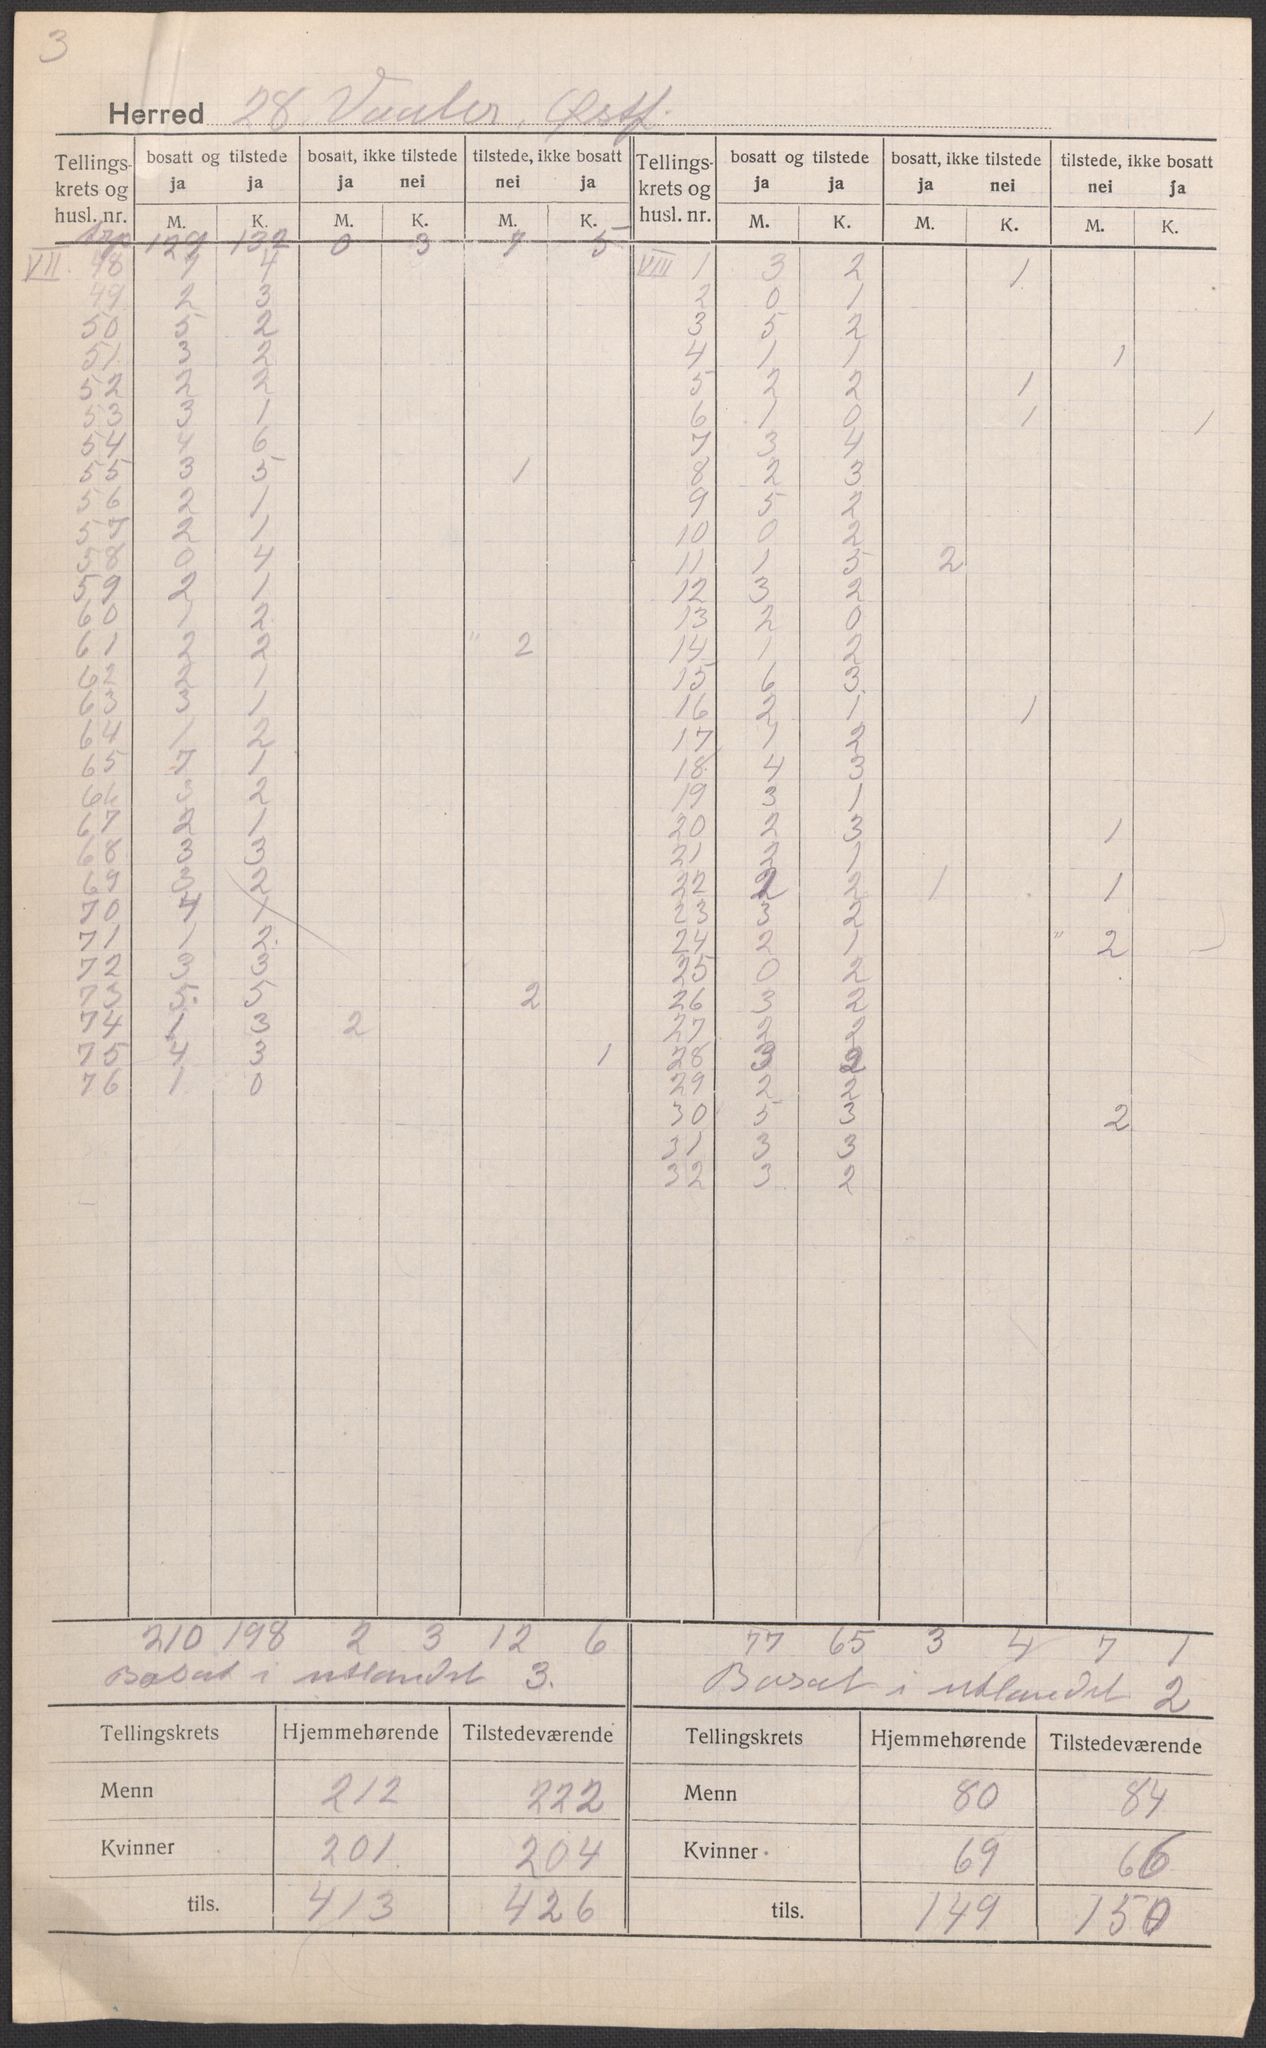 3
Herred 28 Vaaler, Østf.
Tellings- krets og husl. nr. | bosatt og tilstede ja ja M. K. | bosatt, ikke tilstede ja nei M. K. | tilstede, ikke bosatt nei ja M. K. | Tellings- krets og husl. nr. | bosatt og tilstede ja ja M. K. | bosatt, ikke tilstede ja nei M. K. | tilstede, ikke bosatt nei ja M. K.
129 132 0 3 7 5
VII 48 4
49 2 3
50 5 2
51 3 2
52 2 2
53 3 1
54 4 6
55 3 5 1
56 2 1
57 2 1
58 0 4
59 2 1
60 1 2
61 2 2 " 2
62 2 1
63 3 1
64 1 2
65 7 1
66 3 2
67 2 1
68 3 3
69 3 2
70 4 1
71 1 2
72 3 3
73 5 5 2
74 1 3 2
75 4 3 1
76 1 0
VIII 1 3 2 1
2 0 1
3 5 2
4 1 1 1
5 2 2 1
6 1 0 1 1
7 3 4
8 2 3
9 5 2
10 0 2
11 1 5 2
12 3 2
13 2 0
14 1 2
15 6 3
16 2 1 1
17 1 2
18 4 3
19 3 1
20 2 3 1
21 2 1
22 2 2 1 1
23 3 2
24 2 1 " 2
25 0 2
26 3 2
27 2 2
28 3 2
29 2 2
30 5 3 2
31 3 3
32 3 2
210 198 2 3 12 6
77 65 3 4 7 1
Bosat i utlandet 3.
Bosat i utlandet 2
Tellingskrets Hjemmehørende Tilstedeværende
Menn 212 222
Kvinner 201 204
tils. 413 426
Tellingskrets Hjemmehørende Tilstedeværende
Menn 80 84
Kvinner 69 66
tils. 149 150